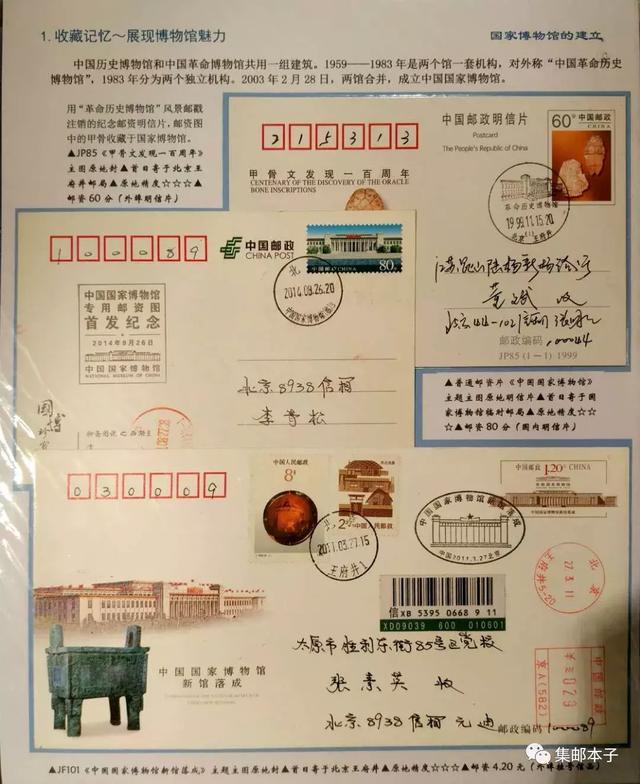 1. 收藏记忆～展现博物馆魅力
国家博物馆的建立
中国历史博物馆和中国革命博物馆共用一组建筑。1959——1983年是两个馆一套机构，对外称“中国革命历史
博物馆”，1983年分为两个独立机构。2003年2月28日，两馆合并，成立中国国家博物馆。
用“革命历史博物馆”风景邮戳
注销的纪念邮资明信片，邮资图
中的甲骨收藏于国家博物馆。
▲JP85《甲骨文发现一百周年》
主图原地封▲首日寄于北京王
府井邮局▲原地精度☆☆☆▲
邮资60分（外埠明信片）
215313
中国邮政明信片
Postcard
The People's Republic of China
60分 中国邮政
CHINA
甲骨文发现一百周年
CENTENARY OF THE DISCOVERY OF THE ORACLE
BONE INSCRIPTIONS
革命历史博物馆
1999.11.15.20
北京(1) 王府井
邮政编码 100044
JP85 (1-1) 1999
100089
中国邮政
CHINA POST
中国邮政 CHINA
80分
北京
2014.09.26.20
中国国家博物馆
专用邮资图
首发纪念
2014年9月26日
中国国家博物馆
NATIONAL MUSEUM OF CHINA
北京8938信箱
李晋松
国博
▲普通邮资片《中国国家博物馆》
主题主图原地明信片▲首日寄于国
家博物馆临时邮局▲原地精度☆☆
☆☆▲邮资80分（国内明信片）
030009
中国人民邮政
8分
中国人民邮政
中国邮政 1.20元
CHINA
北京
2011.03.27.15
王府井1
中国国家博物馆新馆落成
中国 2011.3.27 北京
北京
27.3.11
王府井5.20
信XB 5395 0668 9 11
XD09039 600 010601
太原市胜利东街85号区党校
张素英 收
北京8938信箱 元迪
邮政编码 100089
中国邮政
京A(582)
中国国家博物馆
新馆落成
▲JF101《中国国家博物馆新馆落成》主题主图原地封▲首日寄于北京王府井▲原地精度☆☆☆☆▲邮资4.20元（外埠挂号信函）
集邮本子